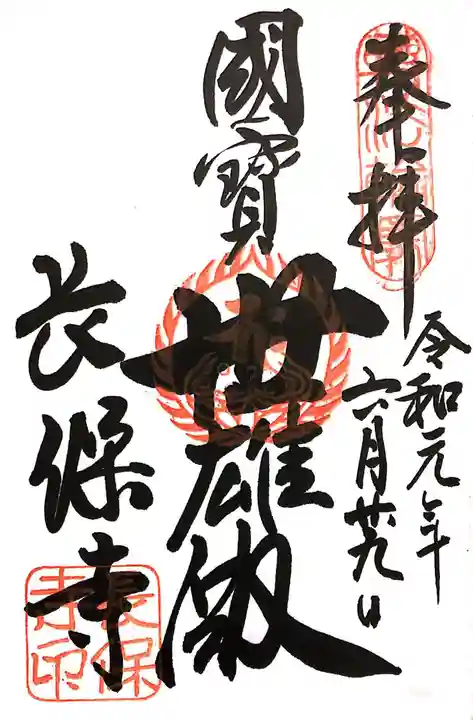 奉拝
令和元年
六月廿九日
國寳
世雄殿
長保寺
長保
寺印